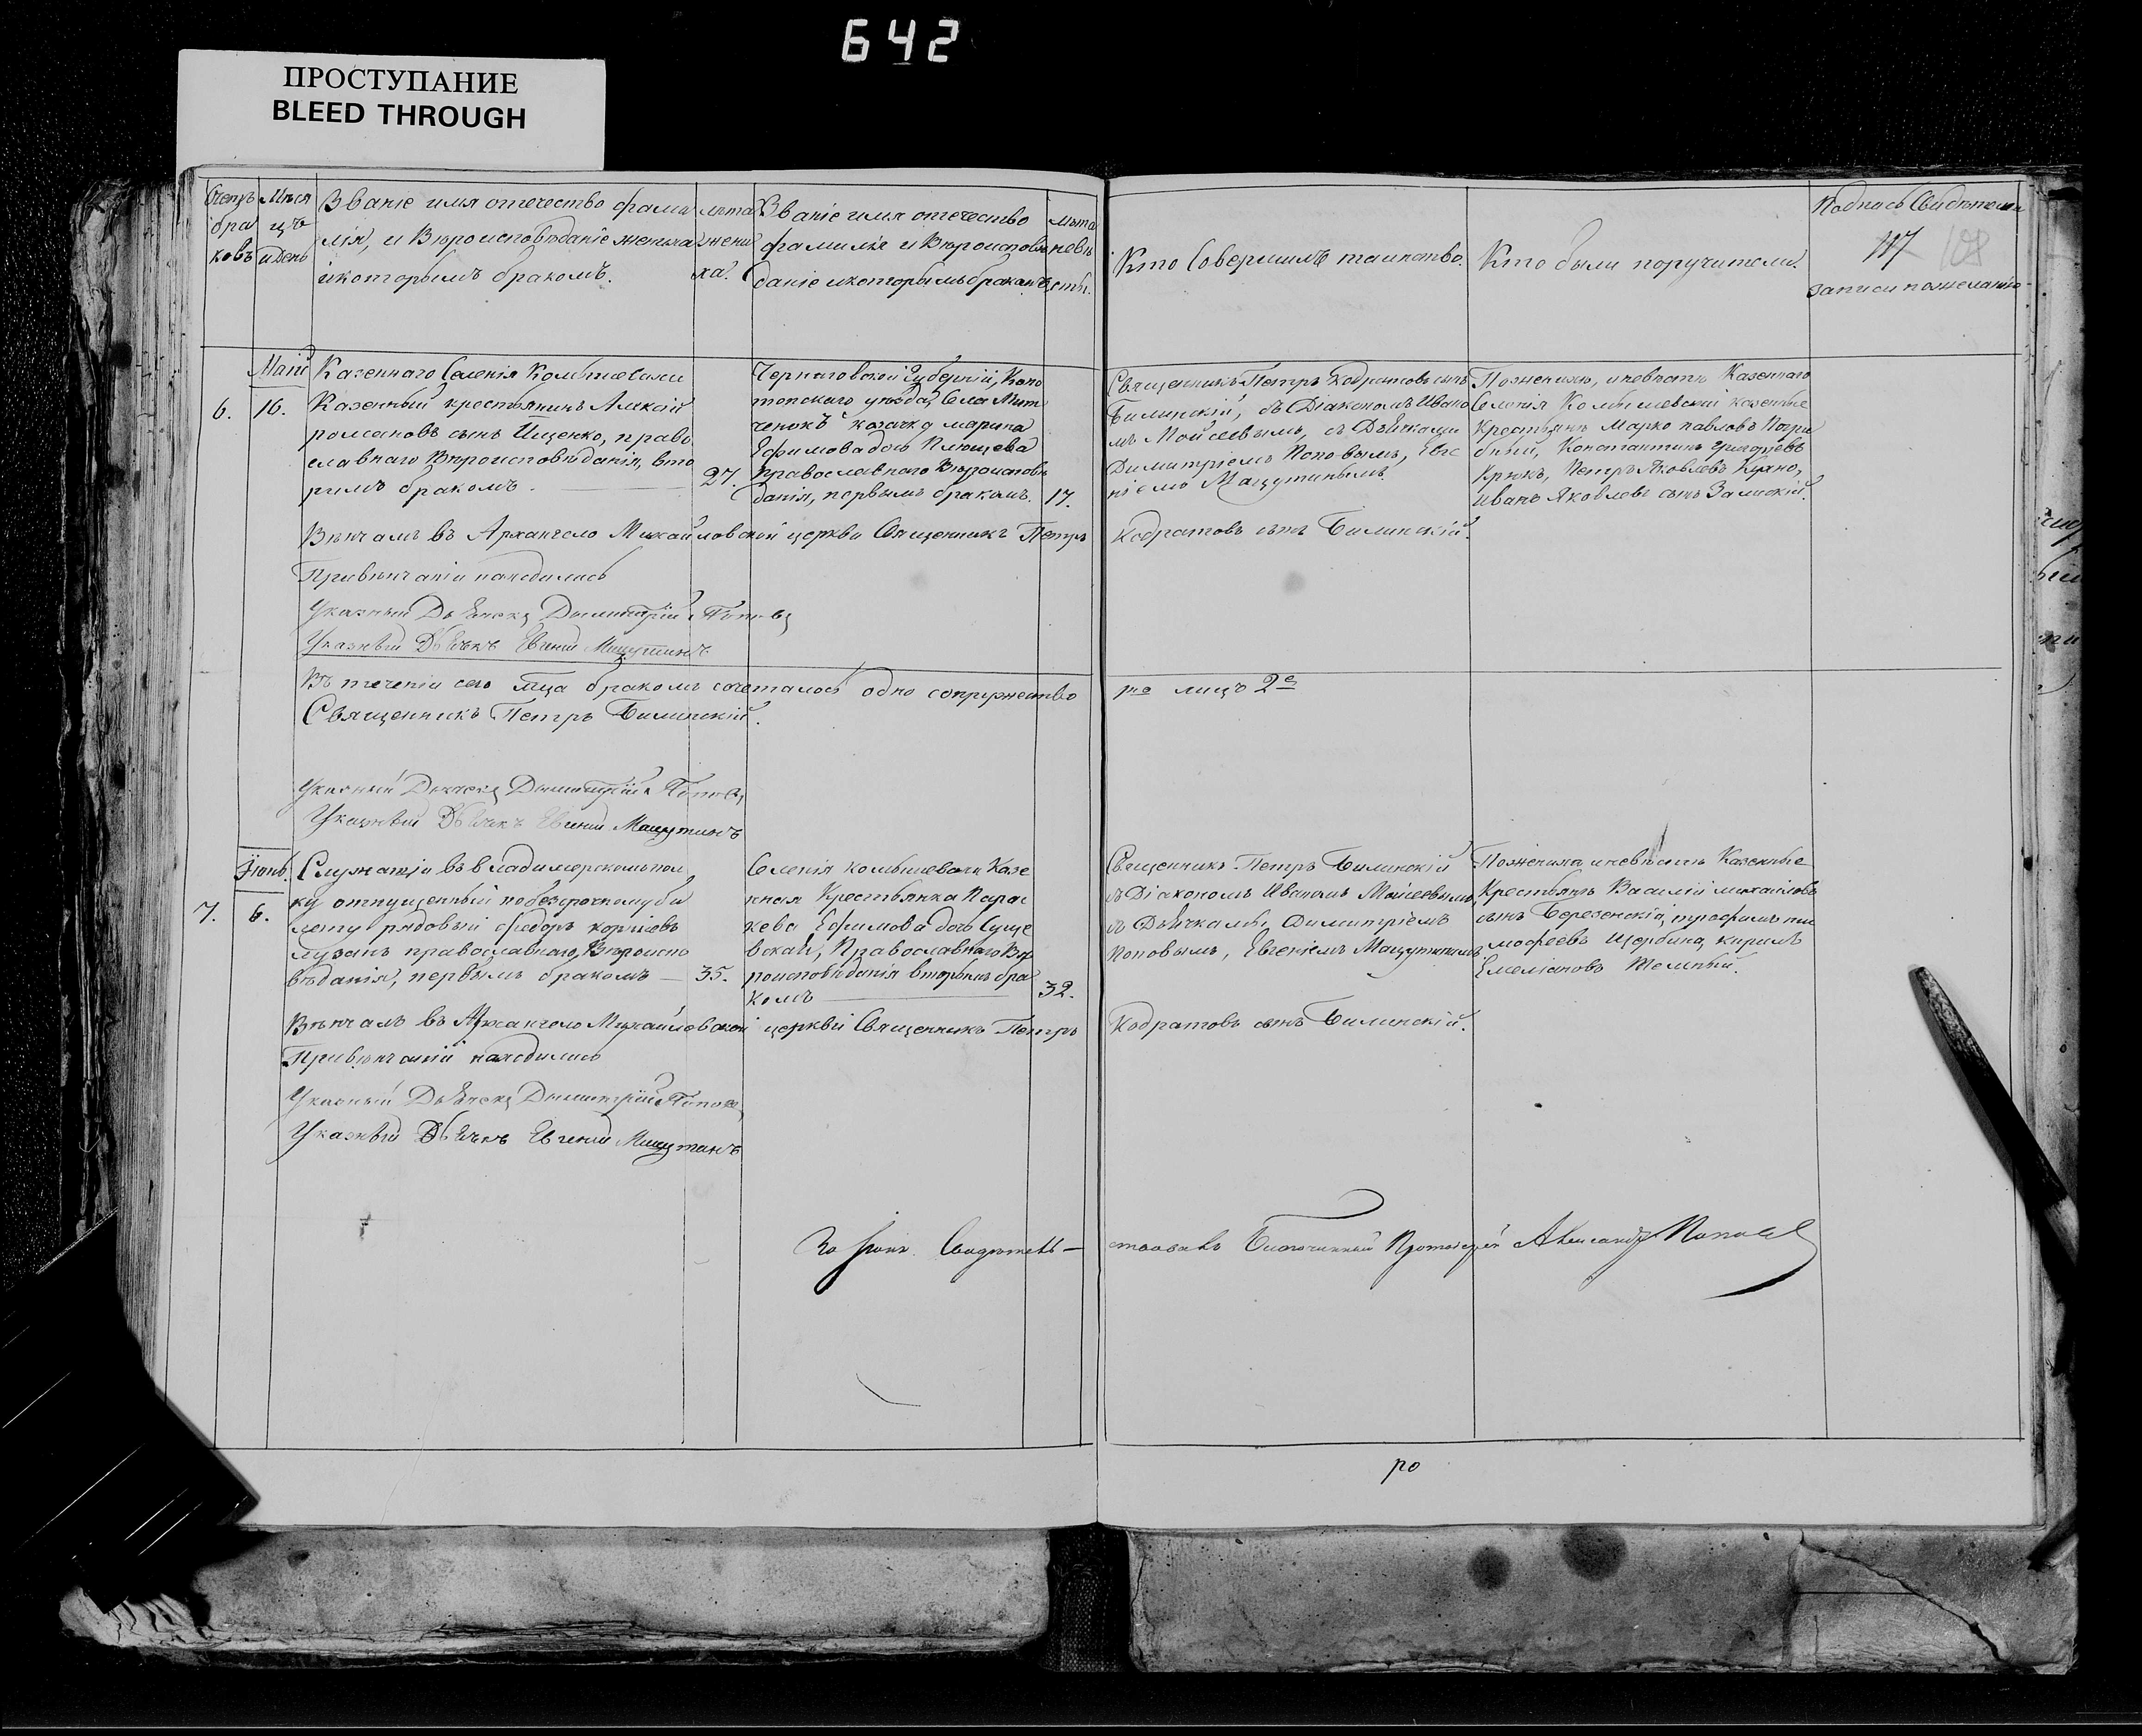 642
ПРОСТУПАНИЕ
BLEED THROUGH
Счетъ
бра
ковъ
Мѣся
цъ
и день
Званіе имя отечество фами
лія, и Вѣроисповѣданіе жениха
и которымъ бракомъ.
лѣта
жени
ха.
Званіе имя отечество
фамилія и Вѣроисповѣ
даніе и которымъ бракомъ
лѣта
невѣ
сты.
Кто Совершилъ таинство.
Кто были поручители.
Подпись Свидѣтелей
117 108
записи по желанію
Маій
6.
16.
Казеннаго Селенія Комышевахи
Казенный крестьянинъ Алексій
романовъ сынъ Ищенко, право
славнаго Вѣроисповѣданія, вто
римъ бракомъ.
27.
Черниговской Губерніи, Коно
топскаго уѣзда, Села Мит
ченокъ козачка марина
Ефимова дочь
Православнаго Вѣроисповѣ
данія, первымъ бракомъ.
17.
Священникъ Петръ Кодратовъ сынъ
Билинскій, съ Діакономъ Ивано
мъ Мойсеевымъ, съ Дьячками
Димитріемъ Поповымъ, Евге
ніемъ Мащутинымъ.
По женихѣ, и невѣстѣ Казеннаго
Селенія Комышевахи казенные
Крестьяне Марко павловъ Погри
бный, Константинъ Григоріевъ
Крюкъ, Петръ Яковлевъ Кухно,
Иванъ Яковлевъ сынъ Залискій.
Вѣнчалъ въ Архангело Михайловской церкви Священникъ Петръ Кодратовъ сынъ Билинскій.
При вѣнчаніи находились
Указный Дьячокъ Димитрій Поповъ
Указный Дьячекъ Евгеній Мащутинъ
Въ теченіи сего мца бракомъ сочеталось одно супружество
то лицъ 2е
Священникъ Петръ Билинскій.
Указный Дьячокъ Димитрій Поповъ
Указный Дьячекъ Евгеній Мащутинъ
Іюнь.
7.
6.
Служащій въ владимерскомъ пол
ку отпущенный по безсрочному би
лету рядовый федоръ корніевъ
лузанъ православнаго, Вѣроиспо
вѣданія, первымъ бракомъ
35.
Селенія комышевахи Казе
нная Крестьянка Парас
кева Ефимова дочь Суще
вская, Православнаго Вѣ
роисповѣданія вторымъ бра
комъ
32.
Священникъ Петръ Билинскій
съ Діакономъ Иваномъ Мойсеевымъ,
съ Дьячками, Димитріемъ
Поповымъ, Евгеніемъ Мащутинымъ
По женихѣ и невѣстѣ Казенные
Крестьяне Василій михайловъ
сынъ Березенскій, трофимъ ти
мофеевъ Щербина, кирилъ
Емеліановъ Темный.
Вѣнчалъ въ Архангело Михайловской церкви Священникъ Петръ Кодратовъ сынъ Билинскій.
При вѣнчаніи находились
Указный Дьячокъ Димитрій Поповъ
Указный Дьячекъ Евгеній Мащутинъ
Свидѣтель-
ствовалъ Благочинный Протоіерей Александръ Поповъ
ро